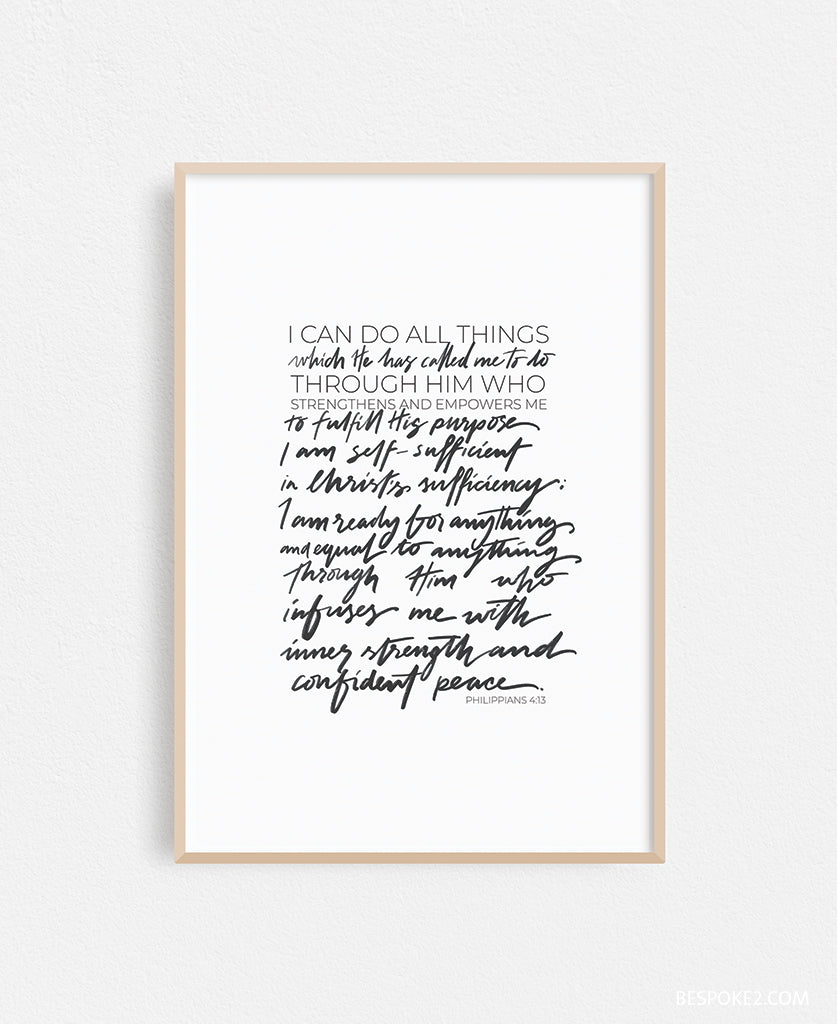 I CAN DO ALL THINGS
which He has called me to do
THROUGH HIM WHO
STRENGTHENS AND EMPOWERS ME
to fulfill His purpose
I am self-sufficient
in Christ's sufficiency;
I am ready for anything
and equal to anything
through Him who
infuses me with
inner strength and
confident peace.
PHILIPPIANS 4:13
BESPOKE2.COM